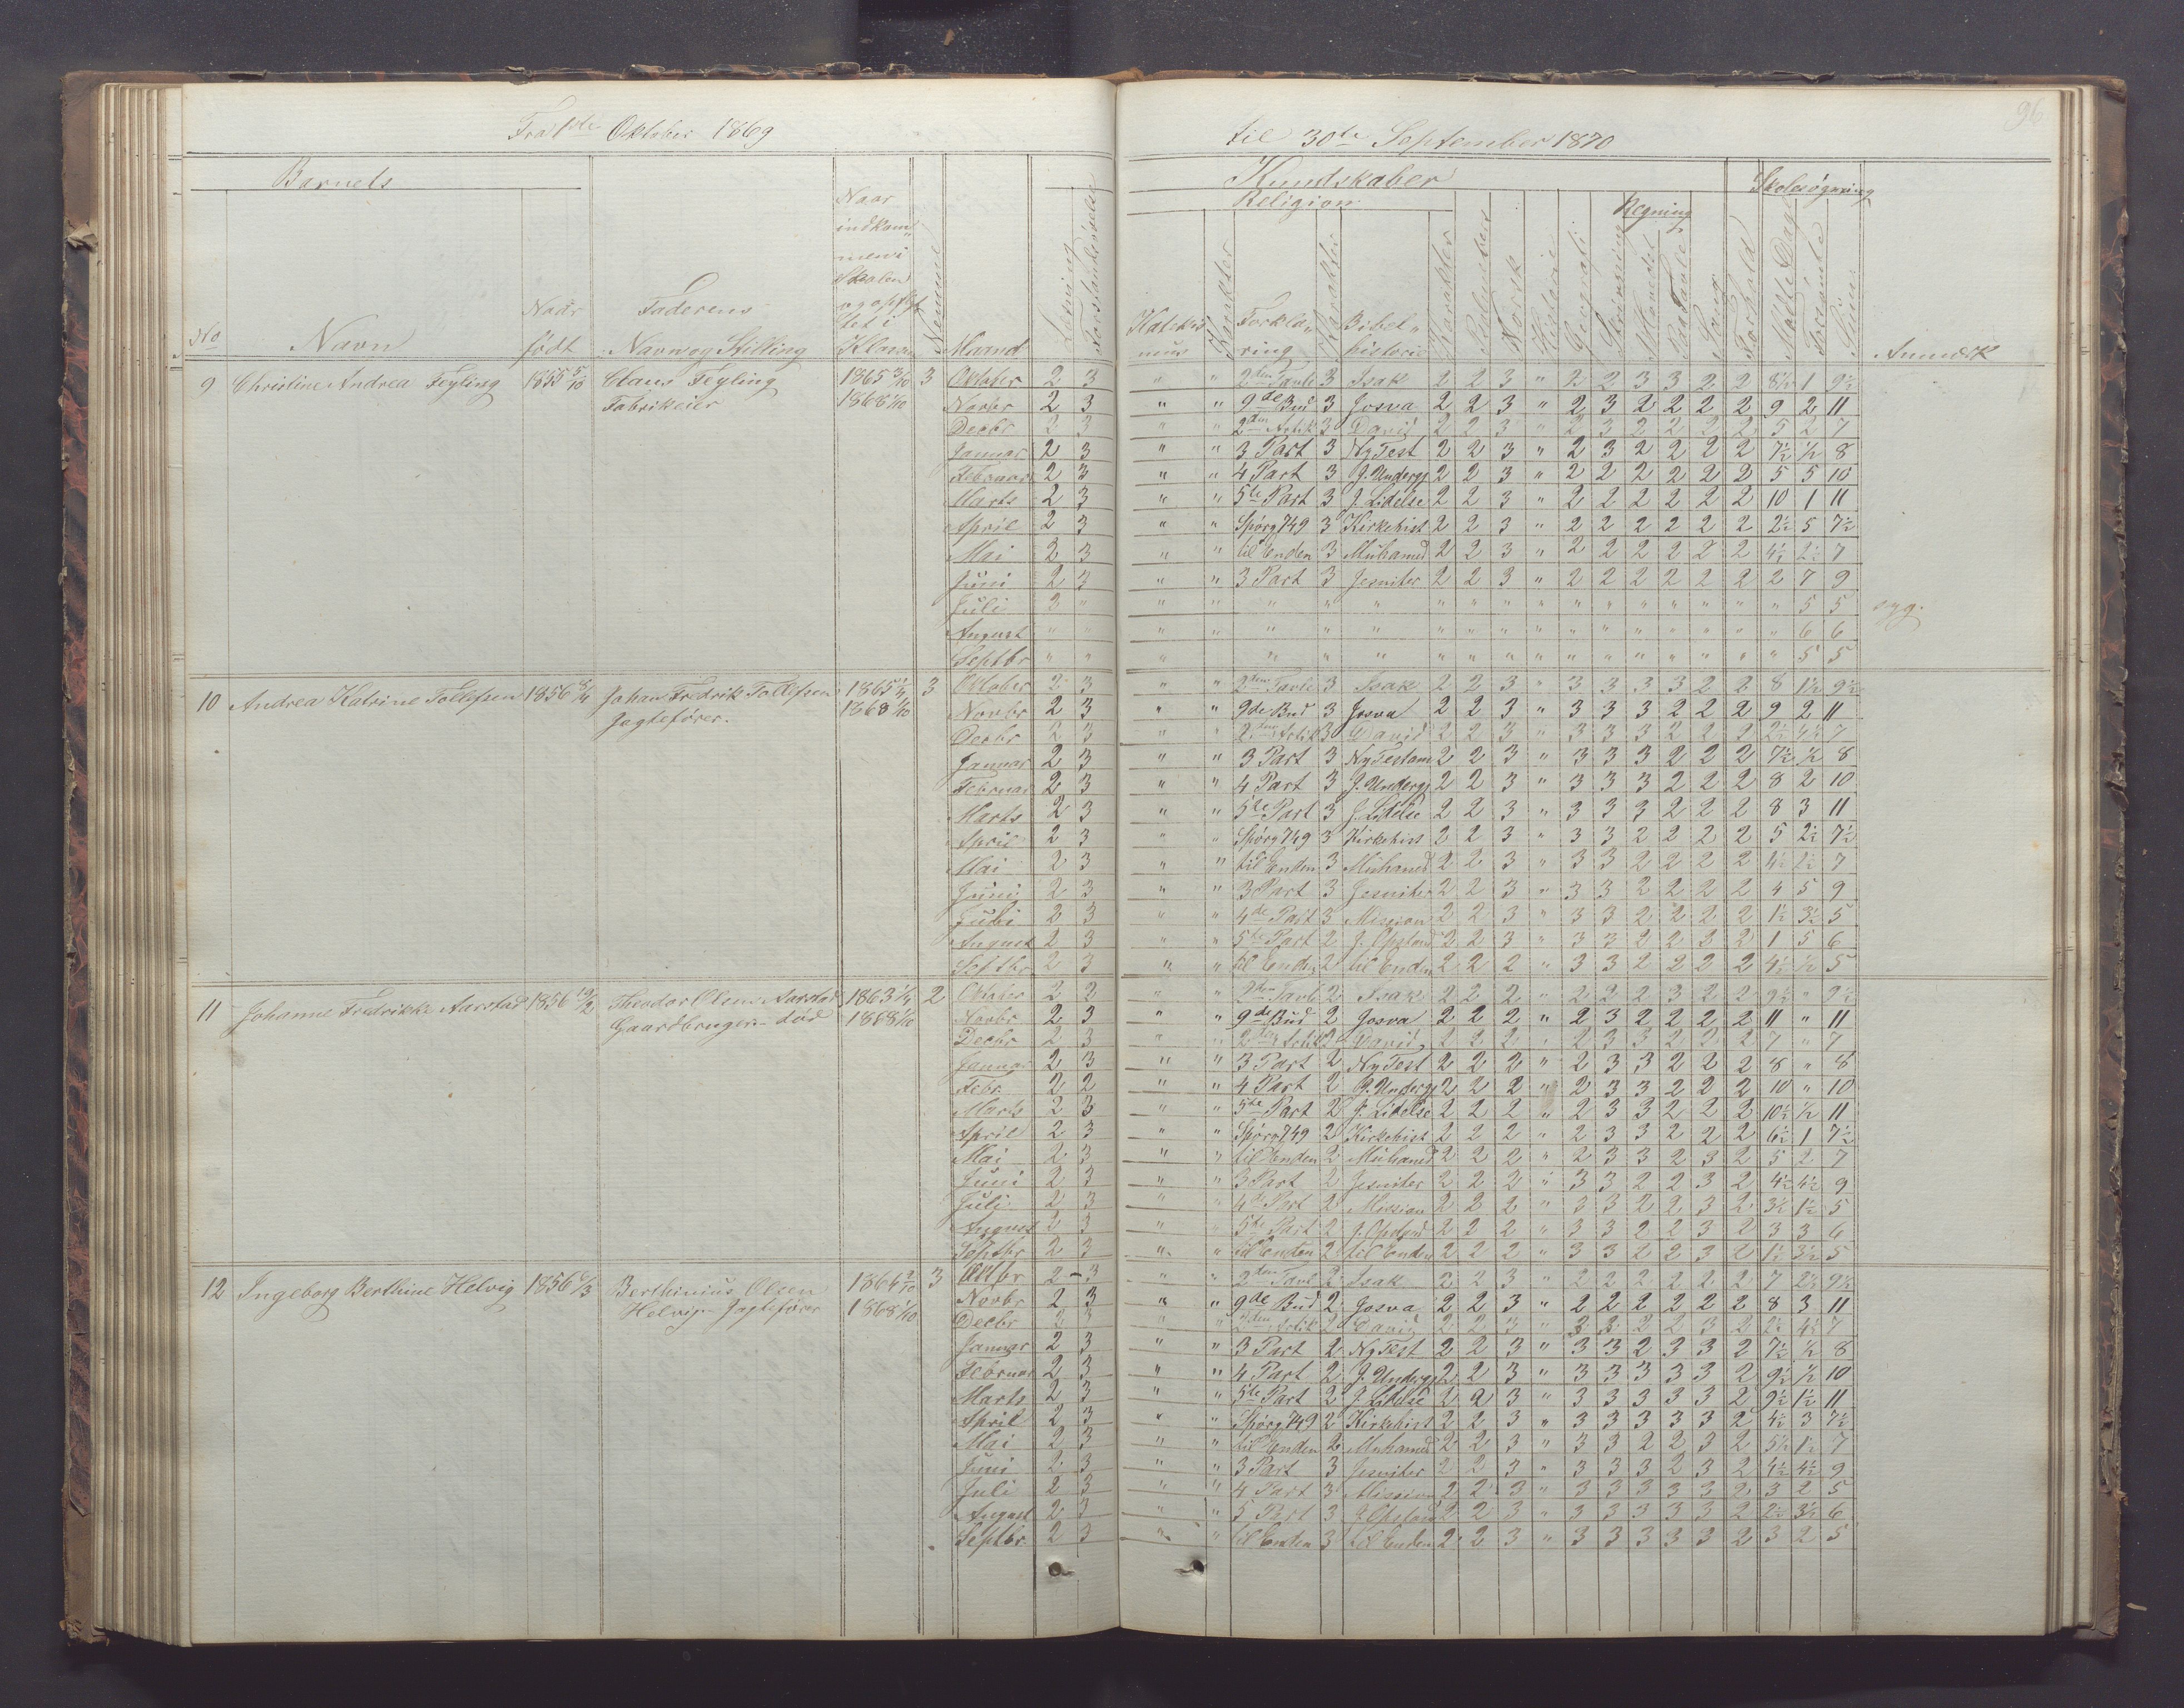 Fra 1ste Oktober 1869
til 30te September 1870
96
Barnets
Kundskaber
Skolesøgning
Religion
Regning
No
Navn
Naar født
Faderens Navn og Stilling
Naar indkommen i Skolen og opflyttet i Klassen
Nemme
Maaned
Læsning
Forstandsøvelse
Katekismus
Karakter
Forklaring
Karakter
Bibelhistorie
Karakter
Norsk
Historie
Geografi
Skrivning
Paa Tavle
Sang
Forhold
Mødte Dage
Forsømte
Anmærk
9 Christine Andrea Feyling 1855 5/10 Claus Feyling 1865 3/10 3 Oktober 2 3 " " 2den Tavle 3 Isak 2 2 3 " 2 2 3 3 2 2 8½ 1 9½
Fabrikeier 1868 1/10 Novbr 2 3 " " 9de Bud 3 Josva 2 2 3 " 2 3 2 2 2 2 9 2 11
Decbr 2 3 " " 2den Artik 3 David 2 2 3 " 2 3 2 2 2 2 5 2 7
Januar 2 3 " " 3 Part 3 Ny Test 2 2 3 " 2 3 2 2 2 2 7½ ½ 8
Februar 2 3 " " 4 Part 3 J. Underg 2 2 3 " 2 2 2 2 2 2 5 5 10
Marts 2 3 " " 5te Part 3 J. Lidelse 2 2 3 " 2 2 2 2 2 2 10 1 11
April 2 3 " " Spørg 749 3 Kirkehist 2 2 3 " 2 2 2 2 2 2 2½ 5 7½
Mai 2 3 " " til Enden 3 Muhamed 2 2 3 " 2 2 2 2 2 2 4½ 2½ 7
Juni 2 3 " " 3 Part 3 Jesuiter 2 2 3 " 2 2 2 2 2 2 2 7 9
Juli 2 " " " " " " " " " " " " " " " " " 5 5 syg.
August " " " " " " " " " " " " " " " " " " 6 6
Septbr " " " " " " " " " " " " " " " " " 5 5
10 Andrea Katrine Tollefsen 1856 8/4 Johan Fredrik Tollefsen 1865 1/4 3 Oktober 2 3 " " 2den Tavle 3 Isak 2 2 3 " 3 3 3 3 2 2 8 1½ 9½
Jagtefører. 1868 1/10 Novbr 2 3 " " 9de Bud 3 Josva 2 2 3 " 3 3 3 2 2 2 9 2 11
Decbr 2 3 " " 2den Artik 3 David 2 2 3 " 3 3 3 2 2 2 2½ 4½ 7
Januar 2 3 " " 3 Part 3 Ny Testam 2 2 3 " 3 3 3 2 2 2 7½ ½ 8
Februar 2 3 " " 4 Part 3 J. Underg 2 2 3 " 3 3 3 2 2 2 8 2 10
Marts 2 3 " " 5te Part 3 J. Lidelse 2 2 3 " 3 3 3 2 2 2 8 3 11
April 2 3 " " Spørg 749 3 Kirkehist 2 2 3 " 3 3 2 2 2 2 5 2½ 7½
Mai 2 3 " " til Enden 3 Muhamed 2 2 3 " 3 3 2 2 2 2 4½ 2½ 7
Juni 2 3 " " 3 Part 3 Jesuiter 2 2 3 " 3 3 2 2 2 2 4 5 9
Juli 2 3 " " 4de Part 3 Mission 2 2 3 " 3 3 2 2 2 2 1½ 3½ 5
August 2 3 " " 5te Part 2 J. Opstand 2 2 3 " 3 3 2 2 2 2 1 5 6
Septbr 2 3 " " til Enden 2 til Enden 2 2 2 " 3 3 2 2 2 2 4½ ½ 5
11 Johanne Fredrikke Aarstad 1856 19/2 Theodor Olsen Aarstad 1863 1/4 2 Oktober 2 2 " " 2den Tavle 2 Isak 2 2 2 " 2 2 2 3 2 2 9½ " 9½
Gaardbruger - død 1868 1/10 Novbr 2 3 " " 9de Bud 2 Josva 2 2 2 " 2 3 2 2 2 2 11 " 11
Decbr 2 3 " " 2den Artik 2 David 2 2 2 " 2 3 3 2 2 2 7 " 7
Januar 2 3 " " 3 Part 2 Ny Test 2 2 2 " 2 3 3 2 2 2 8 " 8
Febr. 2 2 " " 4 Part 2 J. Underg 2 2 2 " 2 3 3 2 2 2 10 " 10
Marts 2 3 " " 5te Part 2 J. Lidelse 2 2 2 " 2 3 3 2 2 2 10½ ½ 11
April 2 3 " " Spørg 749 2 Kirkehist 2 2 2 " 2 3 3 2 2 2 6½ 1 7½
Mai 2 3 " " til Enden 2 Muhamed 2 2 2 " 2 3 3 2 3 2 5 2 7
Juni 2 3 " " 3 Part 2 Jesuiter 2 2 2 " 3 3 2 2 3 2 4½ 4½ 9
Juli 2 3 " " 4de Part 2 Mission 2 2 2 " 3 3 2 2 3 2 3½ 1½ 5
August 2 3 " " 5te Part 2 J. Opstand 2 2 2 " 3 3 2 2 3 2 3 3 6
Septbr 2 3 " " til Enden 2 til Enden 2 2 2 " 3 3 2 2 3 2 1½ 3½ 5
12 Ingeborg Berthine Helvig 1856 6/3 Berthinius Olsen 1864 2/10 3 Oktbr 2 - 3 " " 2den Tavl 2 Isak 2 2 3 " 2 2 2 2 2 2 7 2½ 9½
Helvig - Jagtefører 1868 1/10 Novbr 2 3 " " 9de Bud 2 Josva 2 2 3 " 2 2 2 2 2 2 8 3 11
Decbr 2 3 " " 2den Artik 2 David 2 2 3 " 3 3 2 2 3 2 2½ 4½ 7
Januar 2 3 " " 3 Part 2 Ny Test 2 2 3 " 3 3 2 3 3 2 7½ ½ 8
Februar 2 3 " " 4 Part 2 J. Underg 2 2 3 " 3 3 3 3 3 2 9½ ½ 10
Marts 2 3 " " 5te Part 2 J. Lidelse 2 2 3 " 3 3 3 3 3 2 9½ 1½ 11
April 2 3 " " Spørg 749 2 Kirkehist 2 2 3 " 3 3 3 3 3 2 4½ 3 7½
Mai 2 3 " " til Enden 2 Muhamed 2 2 3 " 3 3 2 2 3 2 5½ 1½ 7
Juni 2 3 " " 3 Part 3 Jesuiter 2 2 3 " 3 3 3 2 3 2 4½ 4½ 9
Juli 2 3 " " 4 Part 3 Mission 2 2 3 " 3 3 3 3 3 2 3 2 5
August 2 3 " " 5 Part 3 J. Opstand 2 2 3 " 3 3 3 3 3 2 2½ 3½ 6
Septbr. 2 3 " " til Enden 3 til Enden 2 2 3 " 3 3 3 3 3 2 3 2 5